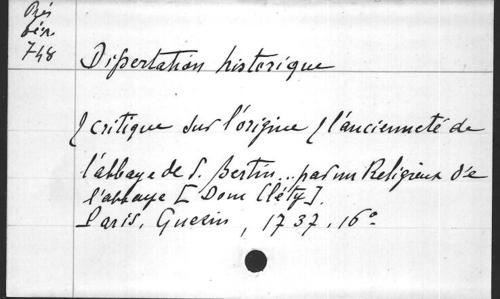 Rés
gén
748
Dissertation historique
& critique sur l'origine & l'ancienneté de
l'abbaye de S. Bertin... par un Religieux de
l'abbaye [Dom Cléty].
Paris, Guerin, 1737, 16°